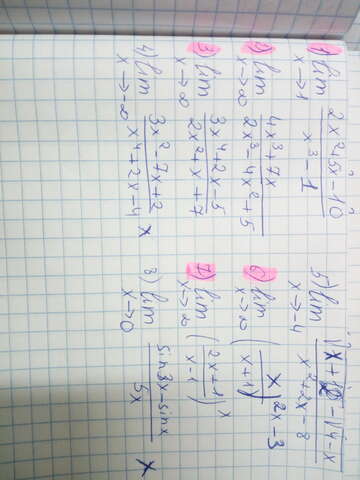 1) lim x→1 2x²+5x-10 / x³-1
2) lim x→∞ 4x³+7x / 2x³-4x²+5
3) lim x→∞ 3x⁴+2x-5 / 2x²+x+7
4) lim x→-∞ 3x²-7x+2 / x⁴+2x-4 x
5) lim x→-4 √x+ -√4-x / x²+2x-8
6) lim x→∞ (x / x+1)²ˣ⁻³
7) lim x→∞ (2x+1 / x-1)ˣ
8) lim x→0 sin3x-sinx / 5x x